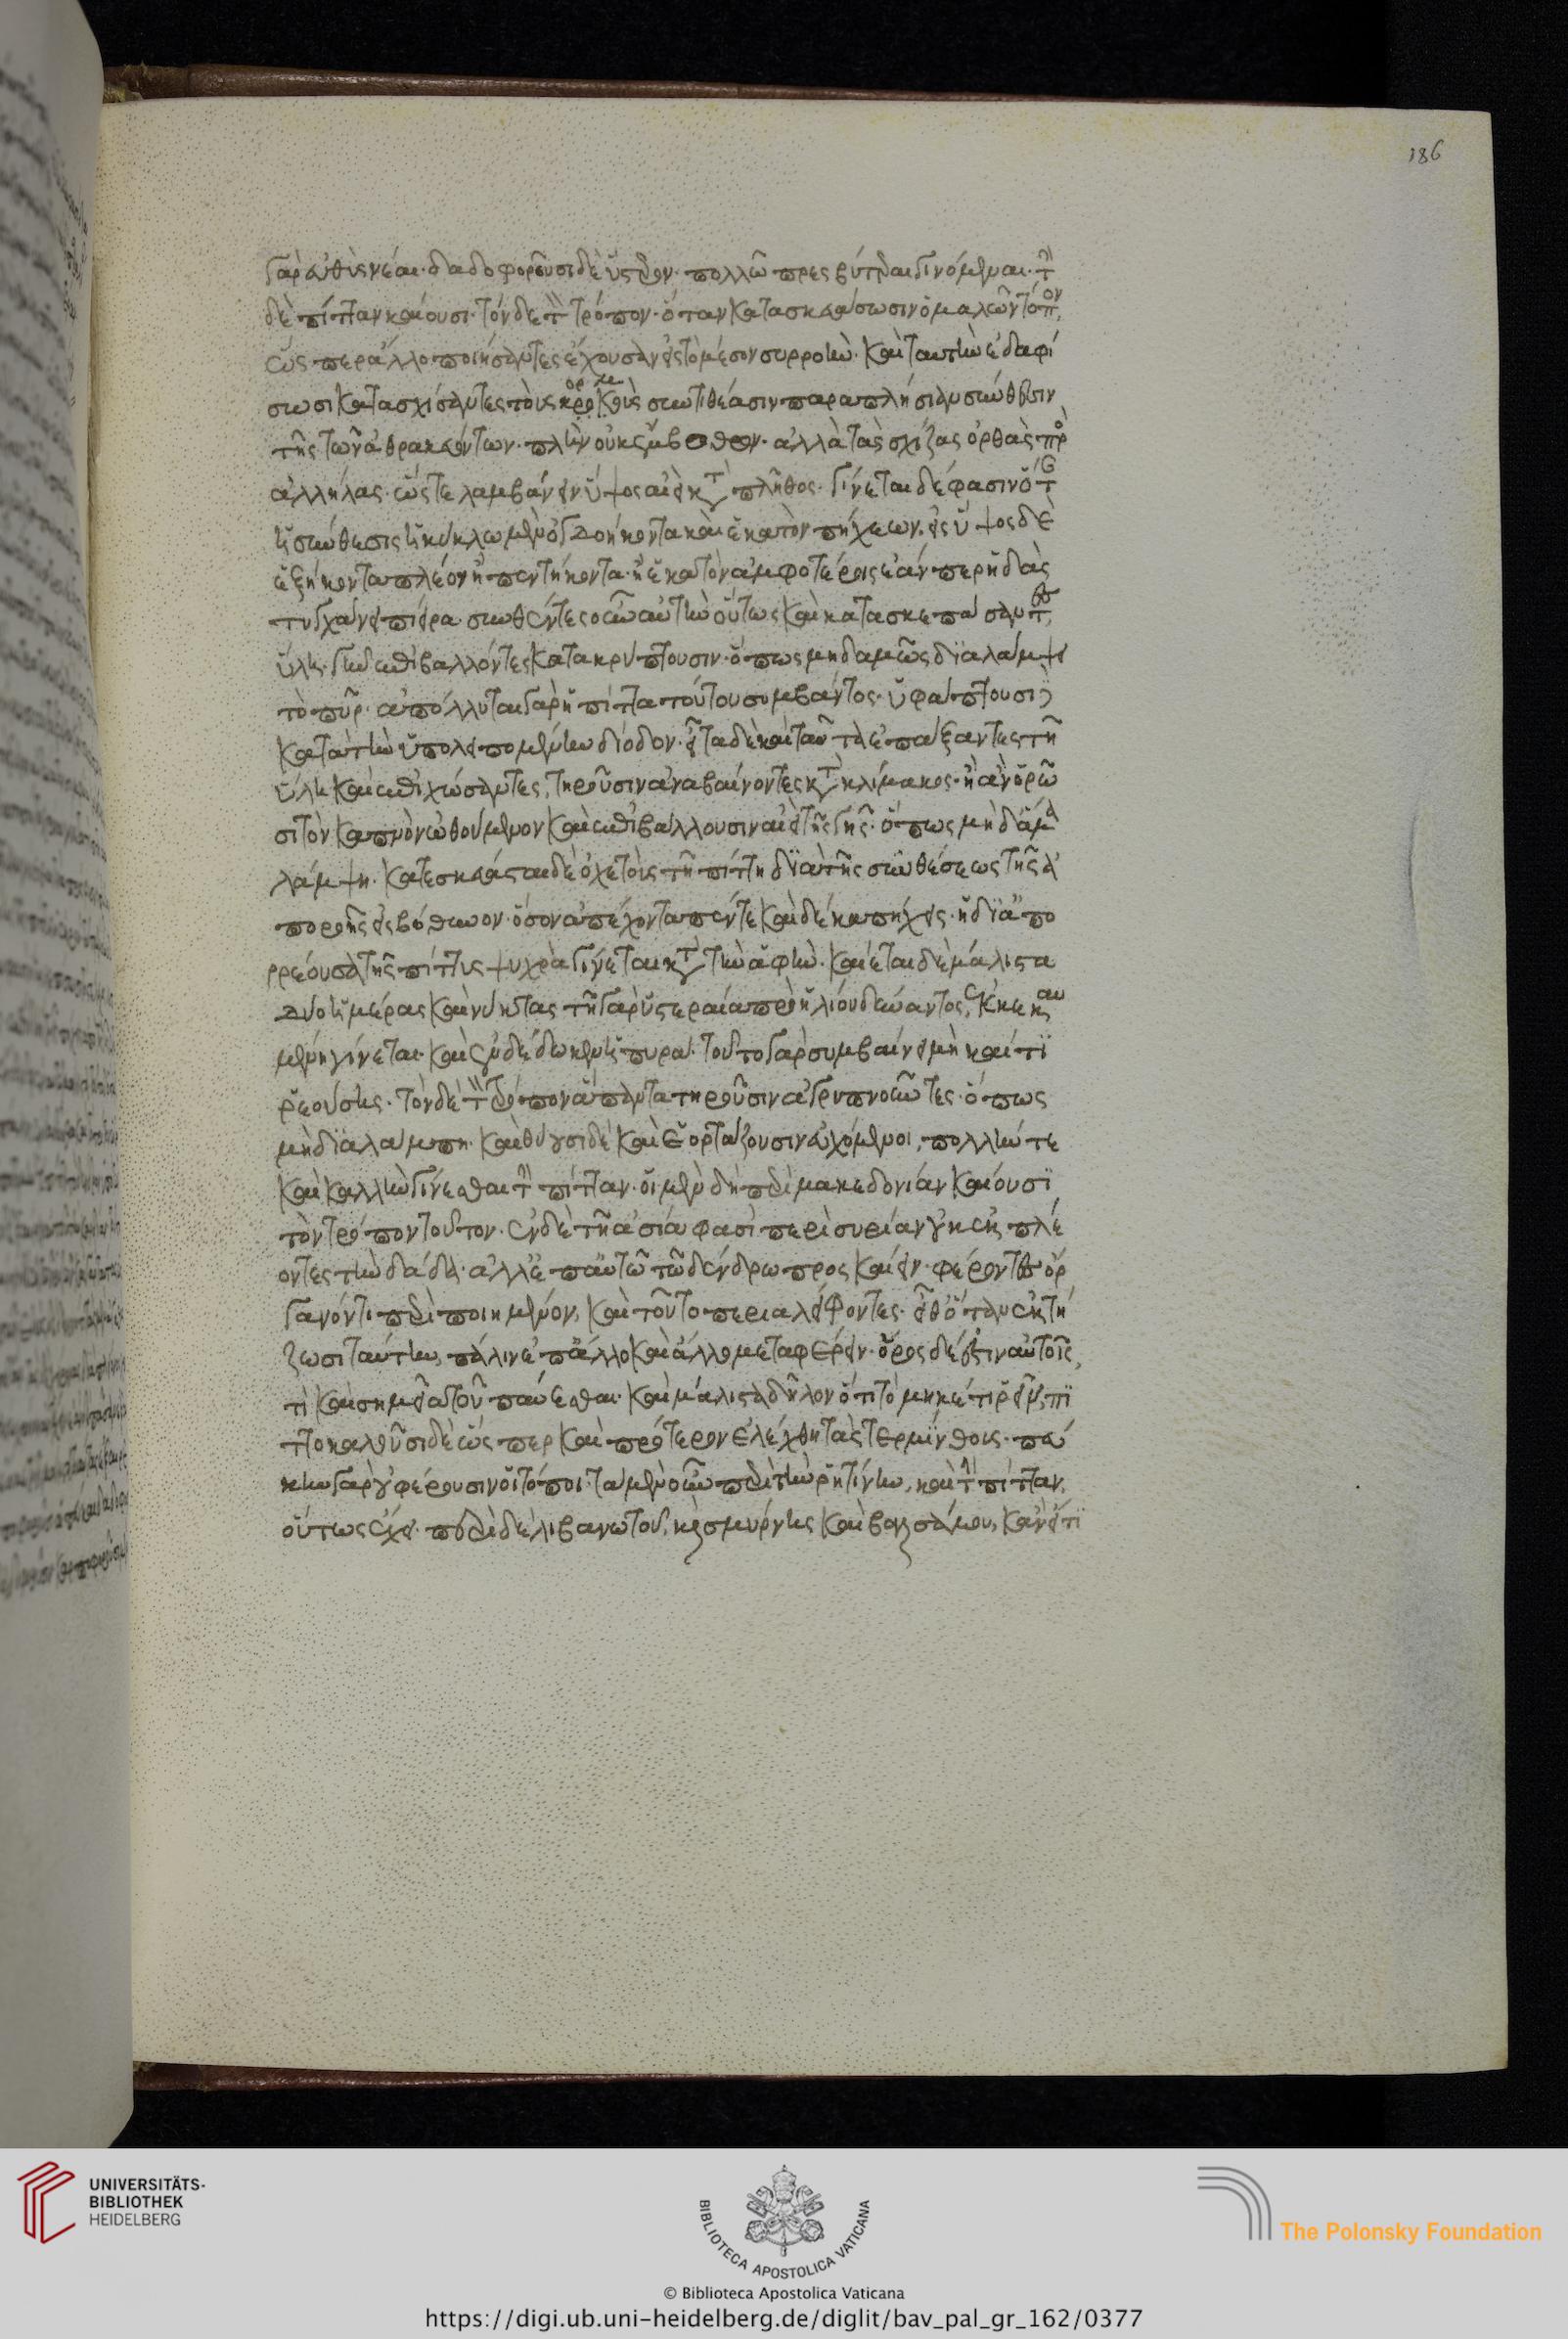 γὰρ εὐθὺς νέαι· δαδοφοροῦσι δὲ ὕστερον· πολλῶ πρεσβύτεραι γινόμεναι· τὴν
δὲ πίτταν καίουσι· τόνδε τὸν τρόπον· ὅταν κατασκευάσωσιν ὁμαλῶν τόπον
ὥς περ ἄλλο ποιήσαντες ἔχουσαν εἰς τὸ μέσον συρροὴν· καὶ ταύτην ἐδαφί
σωσι κατασχίσαντες τοὺς κροκοὺς συντιθέασιν παραπλησίαν σύνθεσιν
τῆς τῶν ἀθρακευόντων· πλὴν οὐκ ἔμβοθρον· ἀλλὰ τὰς σχίζας ὀρθὰς πρὸ
ἀλλήλας· ὥστε λαμβάνειν ὕψος αἰεὶ κατὰ πλῆθος· γίνεται δέ φασιν ὅτ
ἡ σύνθεσις ἡ κύκλω μὲν ὀγδοήκοντα καὶ ἑκατὸν πήχεων, εἰς ὕψος δὲ
ἑξήκοντα πλέον ἢ πεντήκοντα· ἢ ἑκατὸν ἀμφοτέροις ἐάν περ ἡ δὰς
τυγχάνει πίειρα· συνθέντες οὖν αὐτὴν οὕτως καὶ κατασκεπάσαντες
ὕλη· γῆν ἐπιβαλλόντες κατακρύπτουσιν· ὅπως μηδαμῶς διαλάμψει
τὸ πῦρ· ἀπόλλυται γὰρ ἡ πίττα τούτου συμβάντος· ὑφάπτουσι
κατὰ τὴν ὑπολειπομένην δίοδον· εἶτα δὲ καὶ ταῦτα ἐπάξαντες τῆ
ὕλη καὶ ἐπιχώσαντες, τηροῦσιν ἀναβαίνοντες κατὰ κλίμακος· ἢ ἂν ὁρῶ
σι τὸν καπνὸν ὠθούμενον καὶ ἐπιβάλλουσιν αἰεὶ τῆς γῆς· ὅπως μηδ' ἀμα
λάμψη. κατεσκεύασται δὲ ὀχετὸς τῆ πίττη διὰ τῆς συνθέσεως τῆς ἀ
πορροῆς εἰς βόθυνον· ὅσον ἀπέχοντα πέντε καὶ δέκα πήχεις· ἡ δ' ἀπο
ρρέουσα τῆς πίττης ψυχρὰ γίνεται κατὰ τὴν ἁφὴν. καίεται δὲ μάλιστα
δύο ἡμέρας καὶ νύκτας τῆ γὰρ ὑστεραία πρὸ ἡλίου δύναντος, ἐκκεκαυ
μένη γίνεται· καὶ ἐνδέδωκεν ἡ πυρά· τοῦτο γὰρ συμβαίνει μὴ κέτι
ῥεούσης. τόνδε τὸν τρόπον ἅπαντα τηροῦσιν ἀγρυπνοῦντες· ὅπως
μὴ διαλάμπη· καὶ θύουσι δὲ καὶ ἑορτάζουσιν εὐχόμενοι, πολλὴν τε
καὶ καλλὴν γίνεσθαι τὴν πίτταν. οἱ μὲν δὴ περὶ μακεδονίαν καίουσι
τὸν τρόπον τοῦτον. ἐν δὲ τῆ ἀσία φασὶ περὶ συρίαν οὐκ ἐκ πλέ
οντες τὴν δάδα· ἀλλ' ἐπ' αὐτῶ τῶ δένδρω προς καίειν· φέροντες ὄρ
γανόν τι περὶ ποιημένον, καὶ τοῦτο περιαλείφοντες· εἶθ' ὅταν ἐκτή
ξωσι ταύτην, πάλιν ἐπ' ἄλλο καὶ ἄλλο μεταφέρειν· ὅρος δέ ἐστιν αὐτοῖς,
τὶ καὶ σημεῖα τοῦ παύεσθαι· καὶ μάλιστα δῆλον ὅτι τὸ μηκέτι ῥεῖν, πι
ττοκαλοῦσι δὲ ὥς περ καὶ πρότερον ἐλέχθη τὰς τερμίνθους· πεύ
κην γὰρ οὐ φέρουσιν οἱ τόποι· τὰ μὲν οὖν περὶ τὴν ῥητίνην, καὶ τὴν πίτταν,
οὕτως ἔχει· περὶ δὲ λιβανωτοῦ, καὶ σμύρνης καὶ βαλσάμου, καὶ εἴ τι
186
UNIVERSITÄTS-
BIBLIOTHEK
HEIDELBERG
BIBLIOTECA APOSTOLICA VATICANA
The Polonsky Foundation
© Biblioteca Apostolica Vaticana
https://digi.ub.uni-heidelberg.de/diglit/bav_pal_gr_162/0377